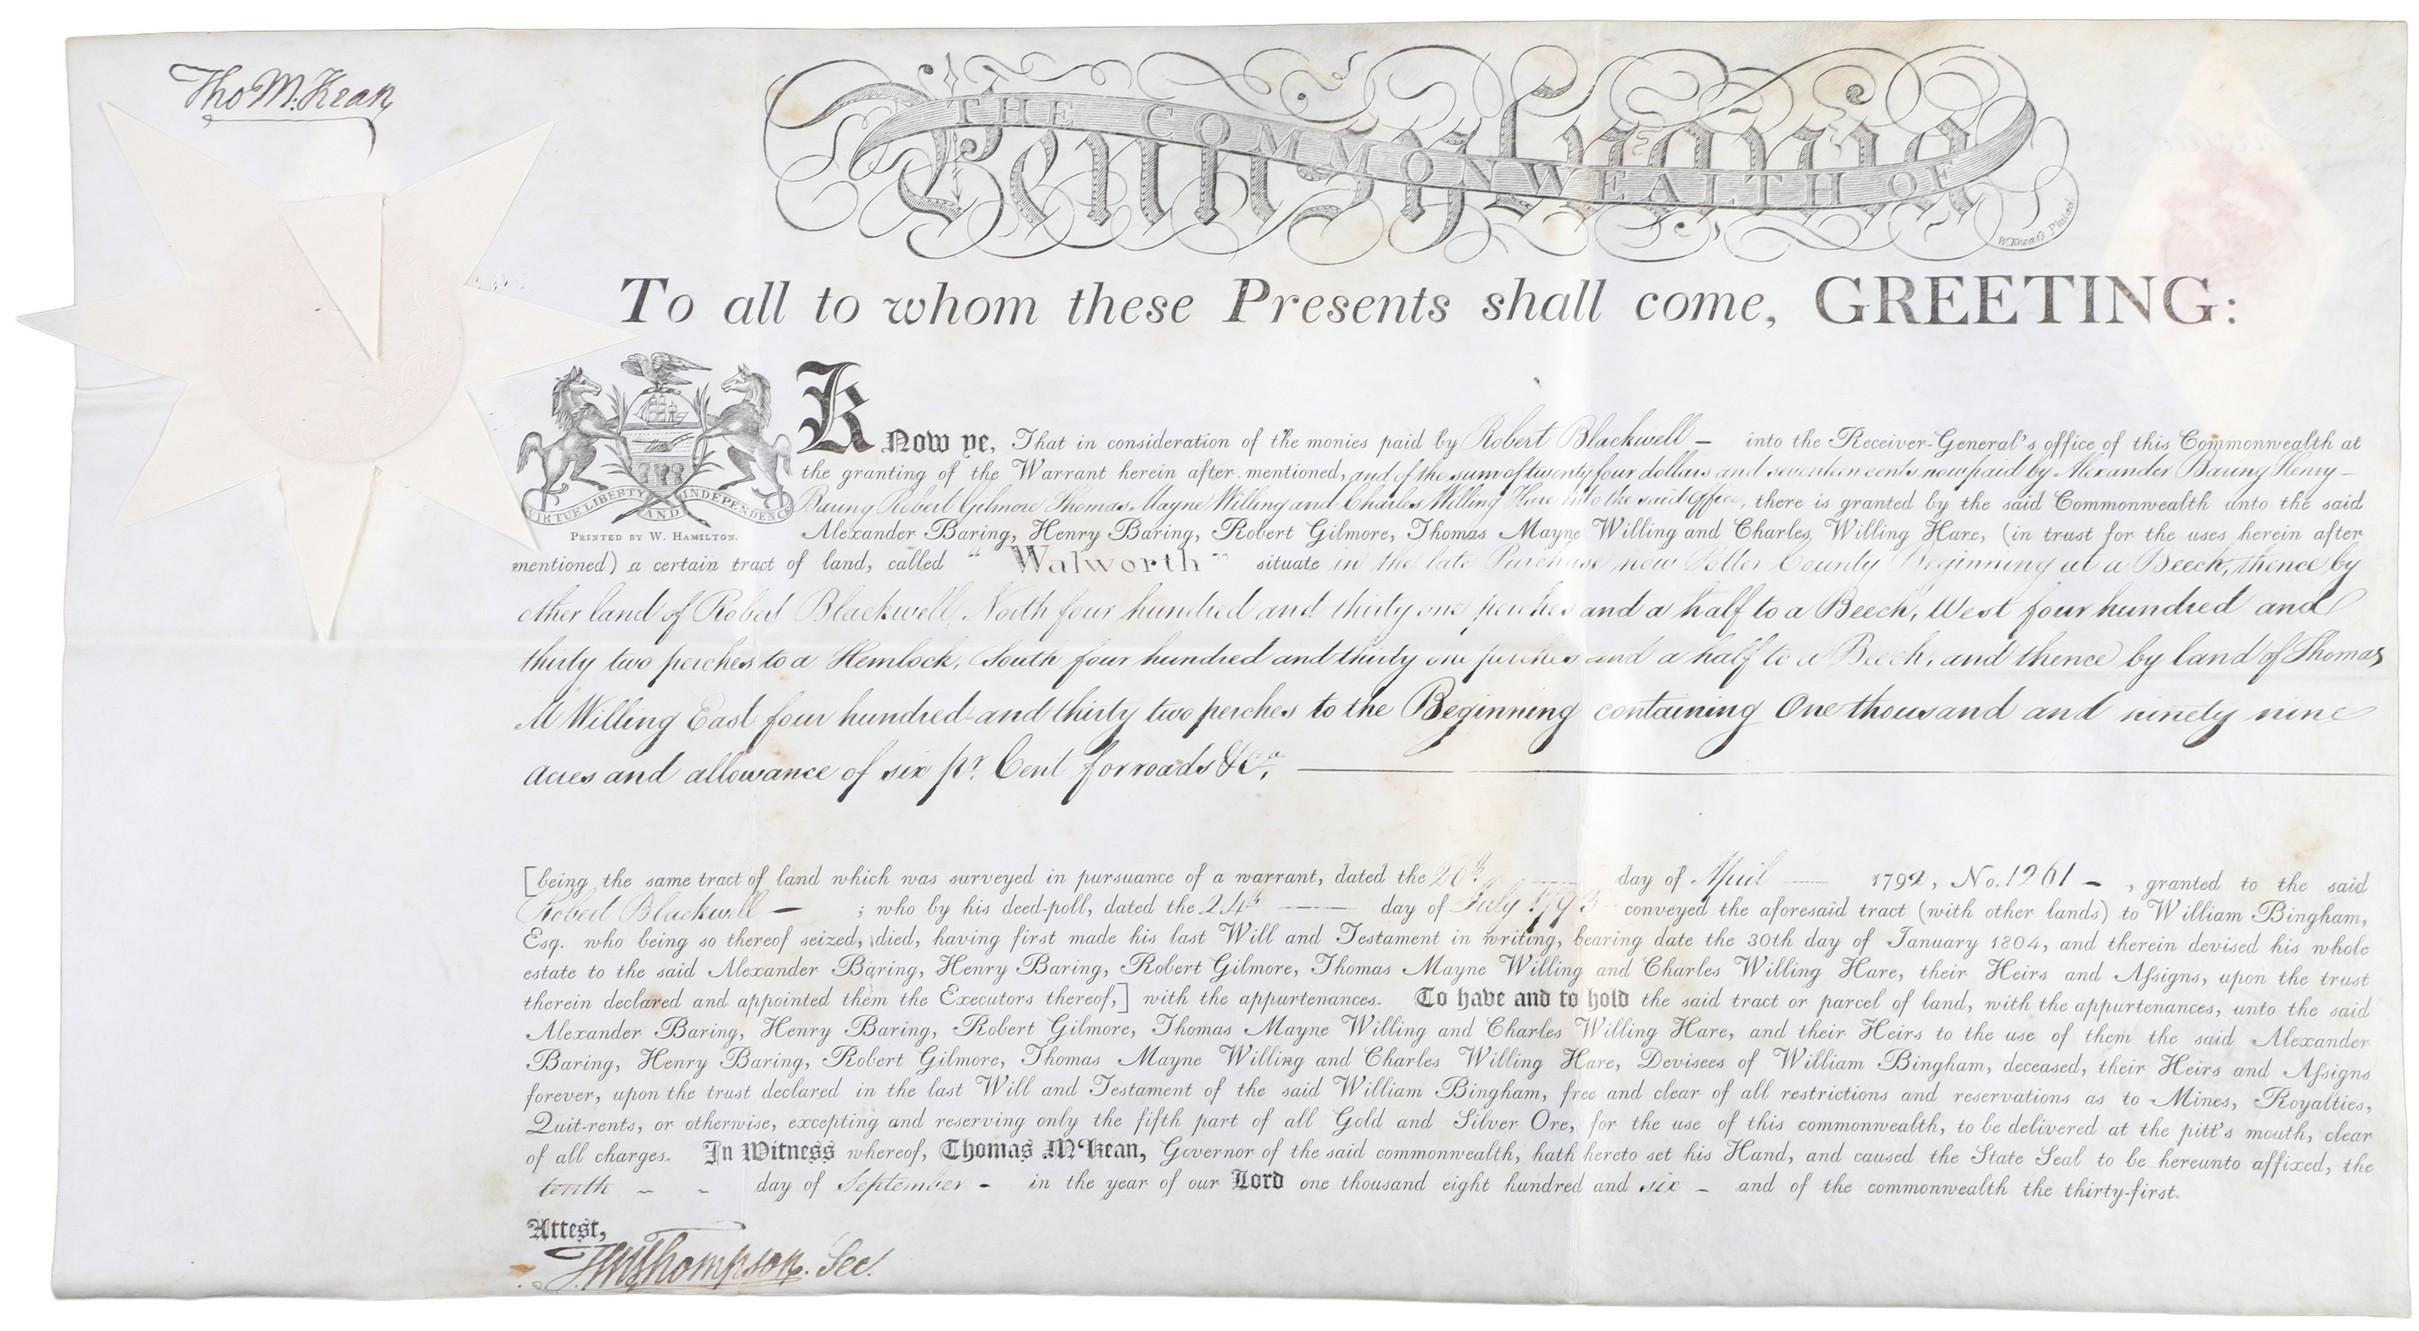 Tho M:Kean
THE COMMONWEALTH OF
Pennsylvania
To all to whom these Presents shall come, GREETING:
VIRTUE LIBERTY AND INDEPENDENCE
PRINTED BY W. HAMILTON.
Know ye, That in consideration of the monies paid by Robert Blackwell – into the Receiver-General's office of this Commonwealth at
the granting of the Warrant herein after mentioned, and of the sum of twenty four dollars and seventeen cents now paid by Alexander Baring Henry –
Baring Robert Gilmore Thomas Mayne Willing and Charles Willing Hare into the said Office, there is granted by the said Commonwealth unto the said
Alexander Baring, Henry Baring, Robert Gilmore, Thomas Mayne Willing and Charles Willing Hare, (in trust for the uses herein after
mentioned) a certain tract of land, called “ Walworth ” situate in the late Purchase now Potter County Beginning at a Beech, thence by
other land of Robert Blackwell, North four hundred and thirty one perches and a half to a Beech, West four hundred and
thirty two perches to a Hemlock, South four hundred and thirty one perches and a half to a Beech, and thence by land of Thomas
M Willing East four hundred and thirty two perches to the Beginning containing One thousand and ninety nine
acres and allowance of six pr. Cent for roads &Ca.
[being the same tract of land which was surveyed in pursuance of a warrant, dated the 26th day of April 1792, No. 1261 – , granted to the said
Robert Blackwell – ; who by his deed-poll, dated the 24th day of July 1793 conveyed the aforesaid tract (with other lands) to William Bingham,
Esq. who being so thereof seized, died, having first made his last Will and Testament in writing, bearing date the 30th day of January 1804, and therein devised his whole
estate to the said Alexander Baring, Henry Baring, Robert Gilmore, Thomas Mayne Willing and Charles Willing Hare, their Heirs and Aſsigns, upon the trust
therein declared and appointed them the Executors thereof,] with the appurtenances. To have and to hold the said tract or parcel of land, with the appurtenances, unto the said
Alexander Baring, Henry Baring, Robert Gilmore, Thomas Mayne Willing and Charles Willing Hare, and their Heirs to the use of them the said Alexander
Baring, Henry Baring, Robert Gilmore, Thomas Mayne Willing and Charles Willing Hare, Devisees of William Bingham, deceased, their Heirs and Aſsigns
forever, upon the trust declared in the last Will and Testament of the said William Bingham, free and clear of all restrictions and reservations as to Mines, Royalties,
Quit-rents, or otherwise, excepting and reserving only the fifth part of all Gold and Silver Ore, for the use of this commonwealth, to be delivered at the pitt's mouth, clear
of all charges. In Witness whereof, Thomas M'Kean, Governor of the said commonwealth, hath hereto set his Hand, and caused the State Seal to be hereunto affixed, the
tenth – – day of September – in the year of our Lord one thousand eight hundred and six – and of the commonwealth the thirty-first.
Attest,
T.M Thompson. Sec.